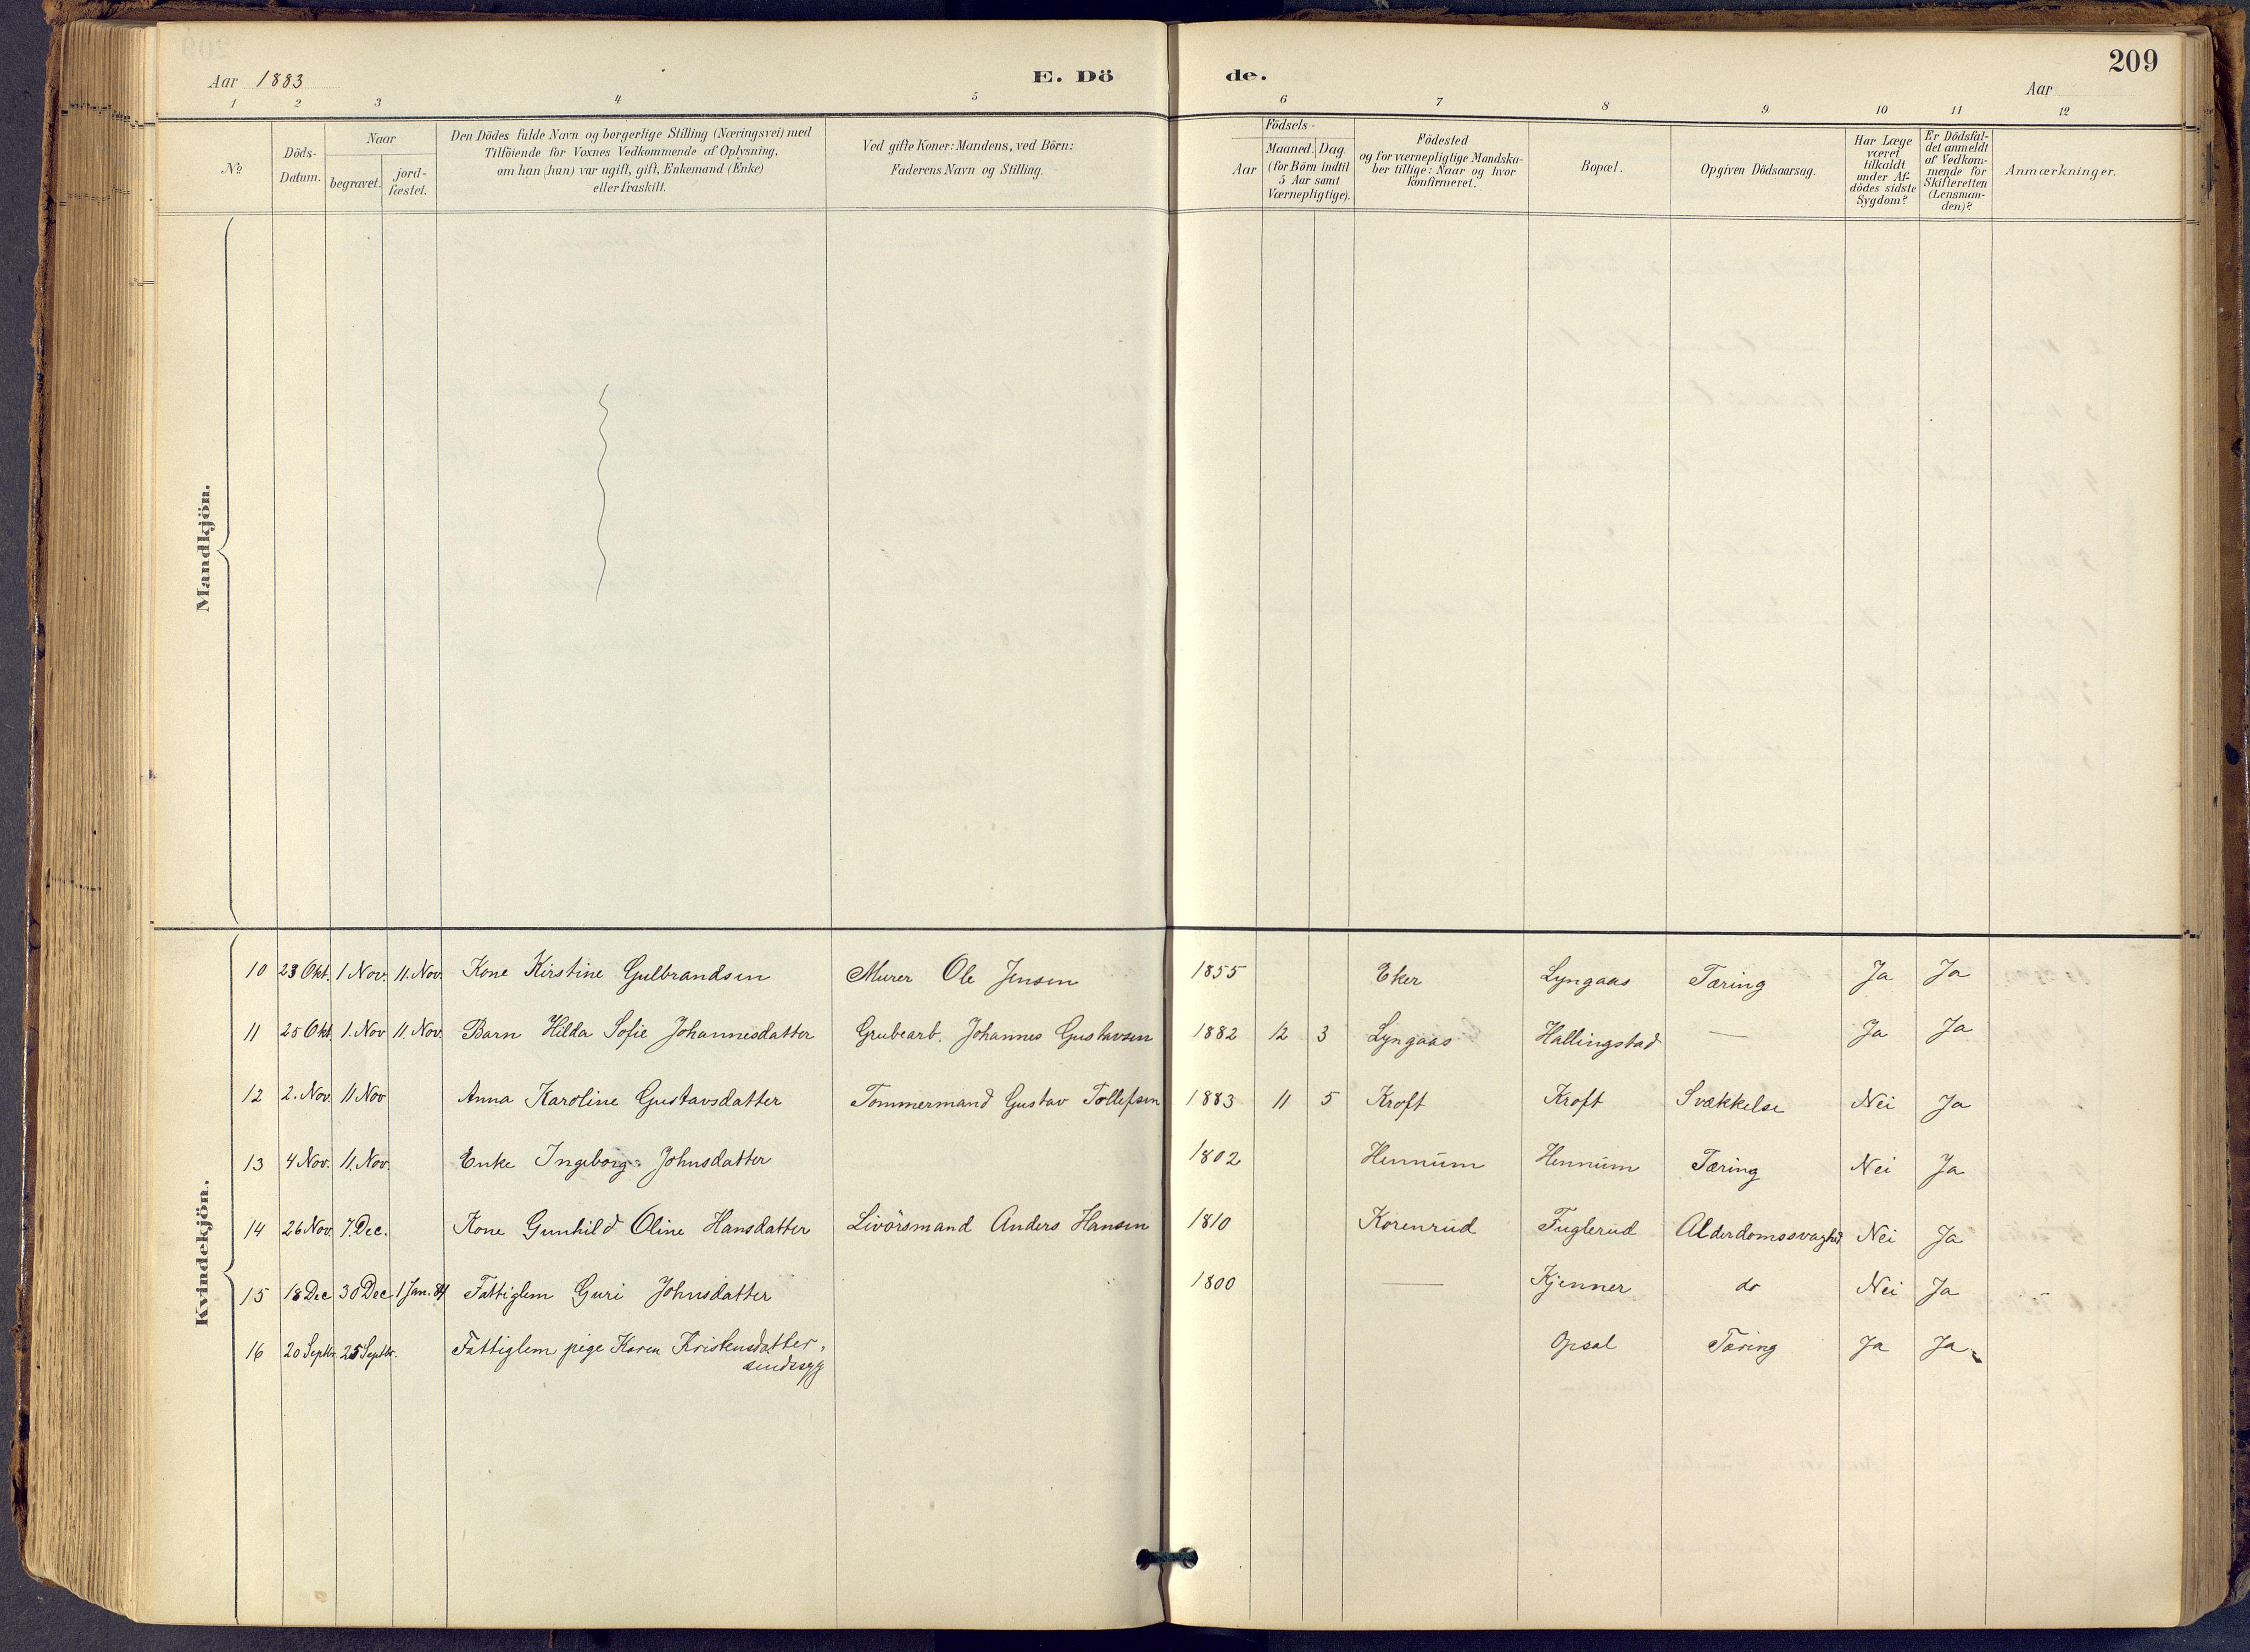 209
Aar 1883 E. Dö de. Aar
1 2 3 4 5 6 7 8 9 10 11 12
№
Döds-Datum.
Naar
begravet.
jord-fæstet.
Den Dödes fulde Navn og borgerlige Stilling (Næringsvei) med
Tilföiende for Voxnes Vedkommende af Oplysning,
om han (hun) var ugift, gift, Enkemand (Enke)
eller fraskilt.
Ved gifte Koner: Mandens, ved Börn:
Faderens Navn og Stilling.
Födsels-
Aar
Maaned. Dag.
(for Börn indtil
5 Aar samt
Værnepligtige).
Födested
og for værnepligtige Mandska-
ber tillige: Naar og hvor
konfirmeret.
Bopæl.
Opgiven Dödsaarsag.
Har Læge
været
tilkaldt
under Af-
dödes sidste
Sygdom?
Er Dödsfal-
det anmeldt
af Vedkom-
mende for
Skifteretten
(Lensman-
den)?
Anmærkninger.
Mandkjön.
Kvindekjön.
10 23 Okt. 1 Nov. 11. Nov. Kone Kirstine Gulbrandsen Murer Ole Jensen 1855 Eker Lyngaas Tæring Ja Ja
11 25 Okt. 1. Nov 11. Nov. Barn Hilda Sofie Johannesdatter Grubearb. Johannes Gustavsen 1882 12 3 Lyngaas Hallingstad — Ja Ja
12 2. Nov. 11 Nov Anna Karoline Gustavsdatter Tommermand Gustav Tollefsen 1883 11 5 Kroft Kroft Svækkelse Nei Ja
13 4 Nov. 11. Nov. Enke Ingeborg Johnsdatter 1802 Hennum Hennum Tæring Nei Ja
14 26 Nov. 7. Dec. Kone Gunhild Oline Hansdatter Livörsmand Anders Hansen 1810 Korenrud Fuglerud Alderdomssvaghed Nei Ja
15 18 Dec 30 Dec. 1 Jan. 84 Fattiglem Guri Johnsdatter 1800 — Kjenner do Nei Ja
16 20 Septbr. 25 Septbr. Fattiglem pige Karen Kristensdatter, Opsal Tæring Ja Ja
sindssyg